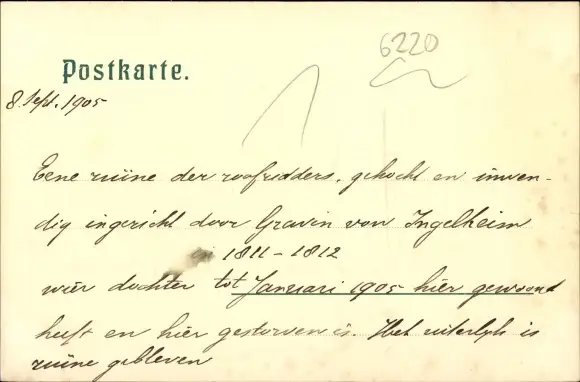 6220
Postkarte.
8. Sept. 1905
Eene ruïne der roofridders, gekocht en inwen-
dig ingericht door Gravin von Ingelheim
in 1811-1812
wier dochter tot Januari 1905 hier gewoond
heeft en hier gestorven is. Het uiterlijk is
ruïne gebleven